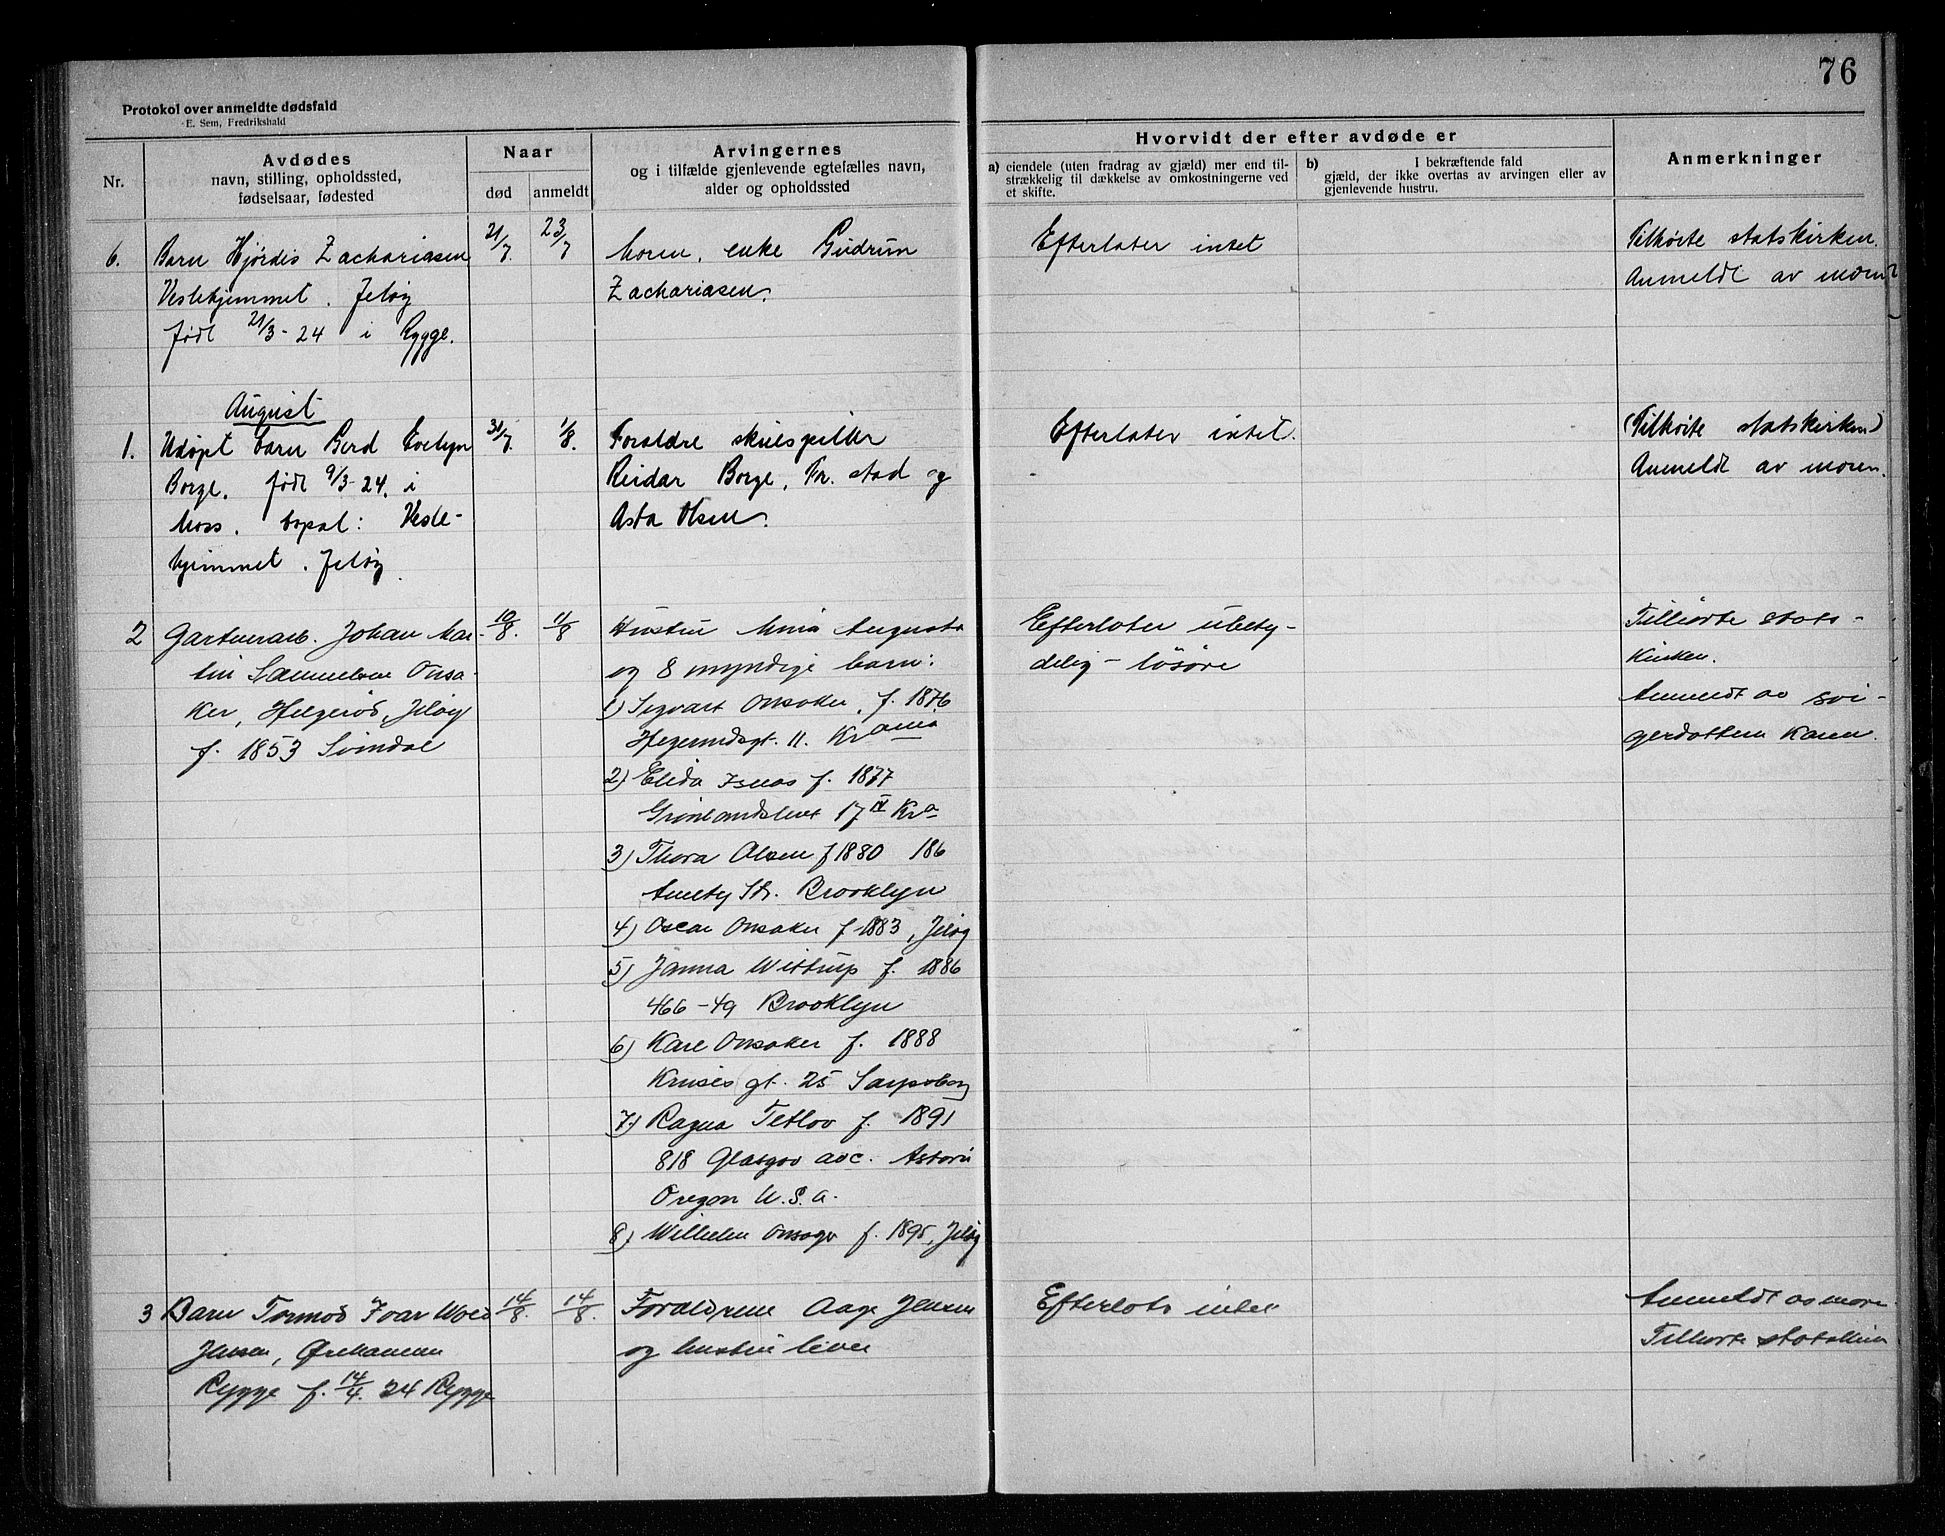 76
Protokol over anmeldte dødsfald
E. Sem, Fredrikshald
Nr.
Avdødes
navn, stilling, opholdssted,
fødselsaar, fødested
Naar
død
anmeldt
Arvingernes
og i tilfælde gjenlevende egtefælles navn,
alder og opholdssted
Hvorvidt der efter avdøde er
a) eiendele (uten fradrag av gjæld) mer end til-
strækkelig til dækkelse av omkostningerne ved
et skifte.
b) I bekræftende fald
gjæld, der ikke overtas av arvingen eller av
gjenlevende hustru.
Anmerkninger
6.
Barn Hjördis Zachariasen
Vestehjemmet. Jeløy
født 21/3-24 i Rygge.
21/7.
23/7
Moren, enke Gudrun
Zachariasen.
Efterlater intet
Tilhörte statskirken.
Anmeldt av moren
August
1.
Udøpt barn Gerd Evelyn
Borge. født 9/3-24. i
Moss. bopæl: Veste-
hjemmet. Jeløy
31/7.
1/8.
Foreldre skuespiller
Reidar Borge, Fr. stad og
Asta Olsen.
Efterlater intet.
(Tilhörte statskirken)
Anmeldt av moren.
2
Gartnerarb. Johan Mar-
tin Samuelsen Onsa-
ker, Helgerød, Jeløy
f. 1853 Svindal
10/8.
11/8
Hustru Mina Augusta
og 8 myndige barn:
1) Sigvart Onsaker, f. 1876
11. Krania
2) Elida f. 1877
Grønlandsleret 17 IV Kra
3) Thora Olsen f 1880 186
Amity Str. Brooklyn
4) Oscar Onsaker f 1883, Jeløy
5) Janna Wittrup f. 1886
466-49 Brooklyn
6) Karl Onsaker f. 1888
Kruses gt. 25 Sarpsborg
7) Ragna Tetlov f. 1891
818 Glasgov ave. Astoria
Oregon U.S.A.
8) Wilhelm Onsager f. 1895, Jeløy
Efterlater ubety-
delig løsøre
Tilhörte stats-
kirken.
Anmeldt av svi-
gerdatteren Karen.
3
Barn Tormod Ivar Wold
Jensen,
Rygge f. 14/4. 24 Rygge
14/8.
14/8.
Forældrene Aage Jensen
og hustru lever
Efterlater intet
Anmeldt av more
Tilhørte statskirken